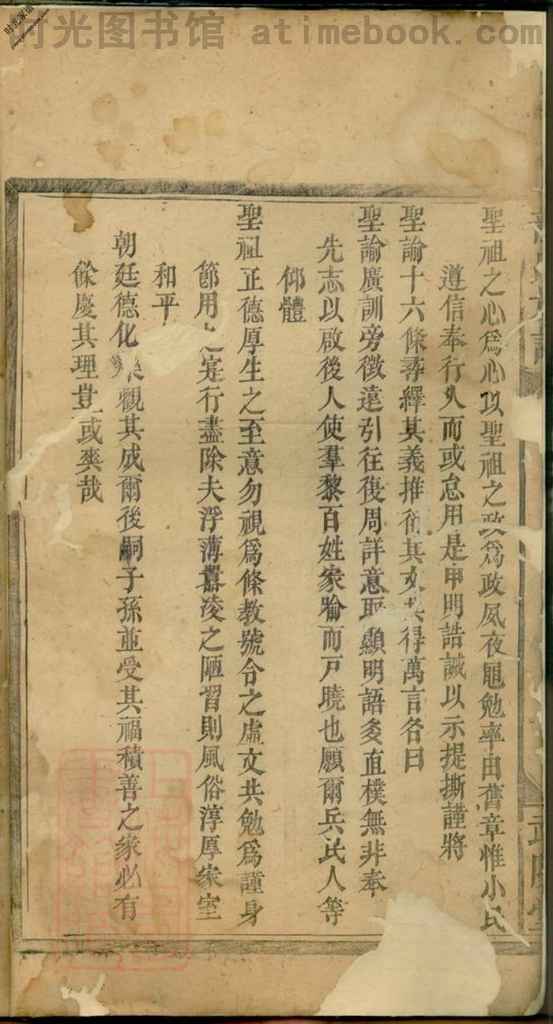 时光图书馆 atimebook.com
聖祖之心爲心以聖祖之政爲政夙夜黽勉率由舊章惟小民
遵信奉行久而或怠用是申明誥誡以示提撕謹將
聖諭十六條尋繹其義推衍其文共得萬言名曰
聖諭廣訓旁徵遠引往復周詳意取顯明語多直樸無非奉
先志以啟後人使羣黎百姓家喻而戸曉也願爾兵民人等
仰體
聖祖正德厚生之至意勿視爲條教號令之虛文共勉爲謹身
節用之 行盡除夫浮薄囂凌之陋習則風俗淳厚家室
和平
朝廷德化 觀其成爾後嗣子孫並受其福積善之家必有
餘慶其理豈或爽哉